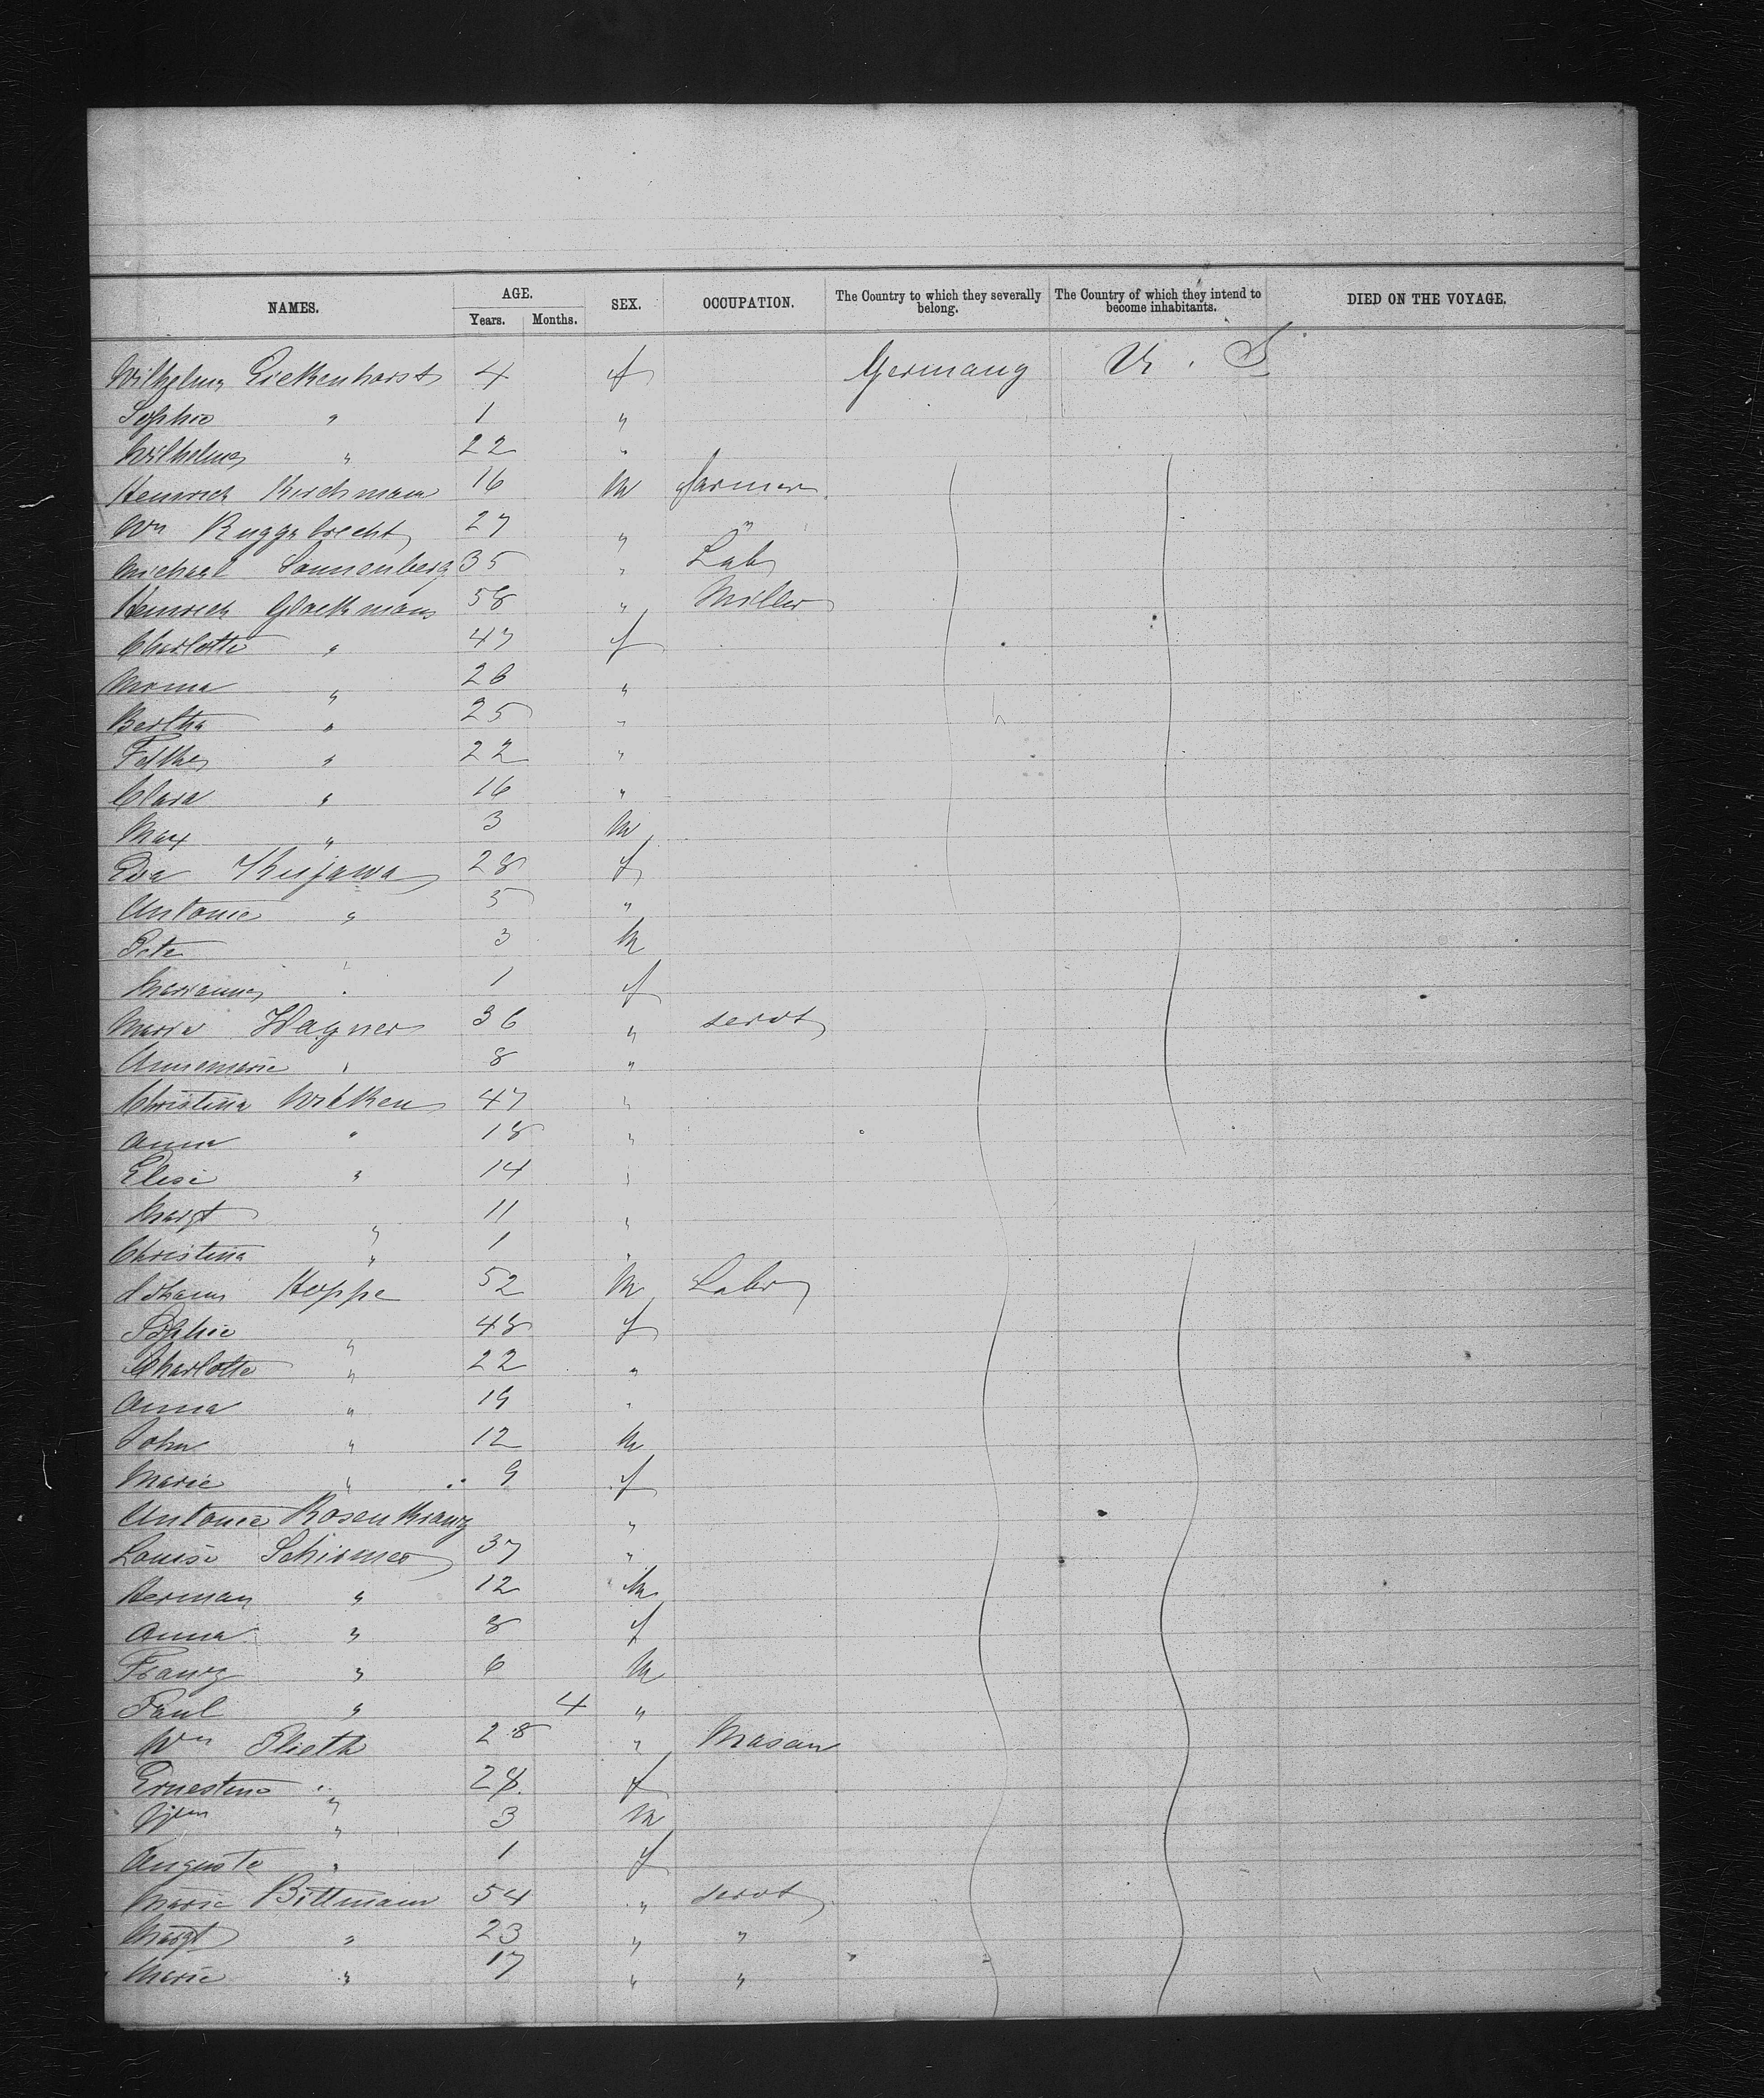 NAMES. AGE. Years. Months. SEX. OCCUPATION. The Country to which they severally belong. The Country of which they intend to become inhabitants. DIED ON THE VOYAGE.
Wilhelma Eickenhorst 4 f Germany U. S
Sophie " 1 "
Wilhelma " 22 "
Heinrich Kirchmann 16 M farmer
Wm Ruggebrecht 27 " "
Michael Sonnenberg 35 " Lab
Heinrich Glockmann 58 " Miller
Charlotte " 47 f
" 26 "
Bertha " 25 "
" 22 "
Clara " 16 "
Max " 3 M
Eva Kujawa 28 f
Antonie " 5 "
Pete " 3 M
Marianna " 1 f
Maria Wagner 36 " servt
Annemarie " 8 "
Christina Wilken 47 "
Anna " 18 "
Elise " 14 "
Margt " 11 "
Christina " 1 "
Johann Hoppe 52 M Labr
Sophie " 48 f
Charlotte " 22 "
Anna " 19 "
John " 12 M
Marie " 9 f
Antonie Rosenkranz "
Louise Schirmer 37 "
Herman " 12 M
Anna " 8 f
Franz " 6 M
Paul " 4 "
Wm Plieth 28 " Mason
Ernestine " 28 f
Wm " 3 M
Auguste " 1 f
Marie Bittmann 54 " servt
Margt " 23 " "
Marie " 17 " "